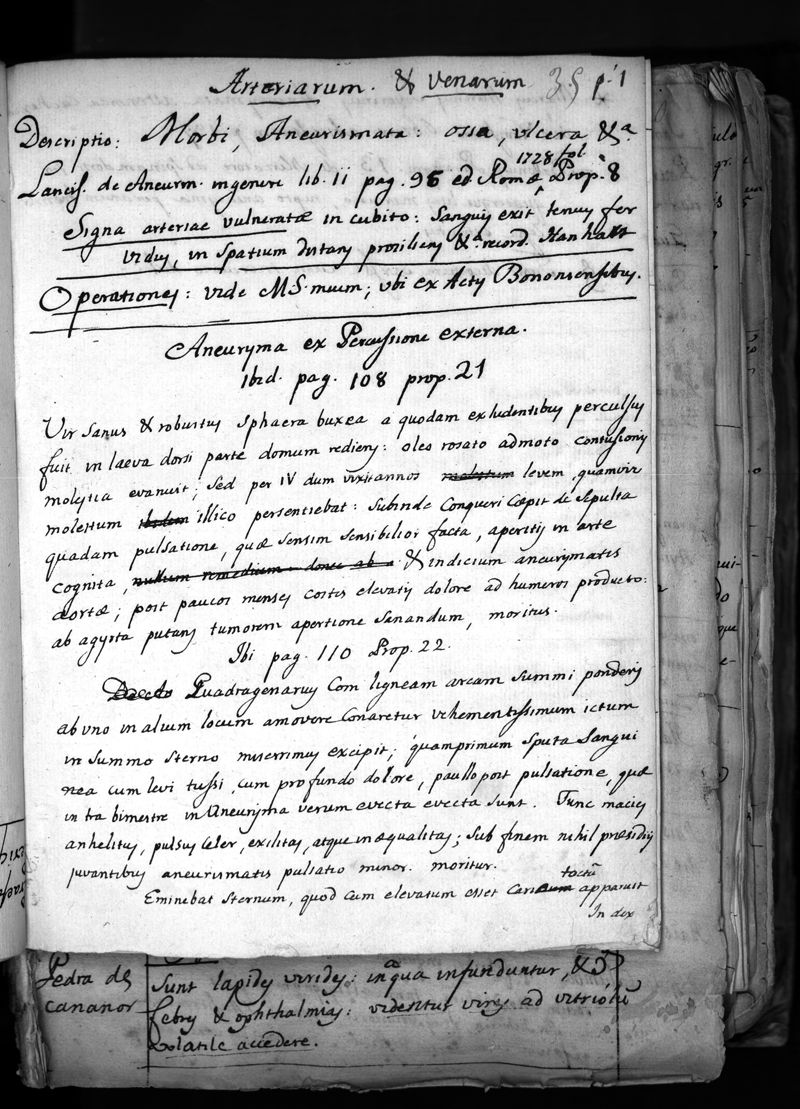 Arteriarum. & venarum 35 p. 1
Descriptio: Morbi, Aneurismata: ossa, vlcera &a.
1728 fol.
Lancis. de Aneurm. in genere lib. II pag. 96 ed. Romæ, Prop. 8
Signa arteriae vulneratæ in cubito: Sanguis exit tenuis fer
vidus, in spatium distans prosiliens &a record.
Operationes: vide MS. meum; vbi ex Actis Bononiensibus.
Aneurysma ex Percussione externa.
Ibid. pag. 108 prop. 21
Vir Sanus & robustus Sphaera buxea a quodam ex ludentibus percussus
fuit in laeva dorsi parte domum rediens: oleo rosato admoto contusionis
molestia evanuit; Sed per IV dum vixit annos molestum levem, quamvis
molestum illico persentiebat: Subinde Conqueri Cœpit de Sepulta
quadam pulsatione, quæ sensim sensibilior facta, aperitis in arte
cognita, nullum remedium donec ab & indicium aneurysmatis
aortæ; post paucos menses costis elevatis dolore ad humeros producto:
ab agyrta putans tumorem apertione Sanandum, moritus.
Ibi pag. 110 Prop. 22.
Quadragenarius Com ligneam arcam Summi ponderis
ab vno in alium locum amovere Conaretur vehementissimum ictum
in Summo Sterno miserrimus excipit; quamprimum Sputa Sangui
nea cum levi tussi, cum profundo dolore, paullo post pulsatione, quæ
intra bimestre in Aneurysma verum evecta evecta sunt. Tunc macies
anhelitus, pulsus Celer, exilitas, atque inæqualitas; Sub finem nihil præsidiis
juvantibus aneurismatis pulsatio minor. moritur.
Eminebat Sternum, quod Cum elevatum esset apparuit
In dex
Pedra de
Cananor
Sunt lapides virides: in aqua infunduntur, &
febris & ophthalmias: videntur vires ad vitriolũ
volatile accedere.